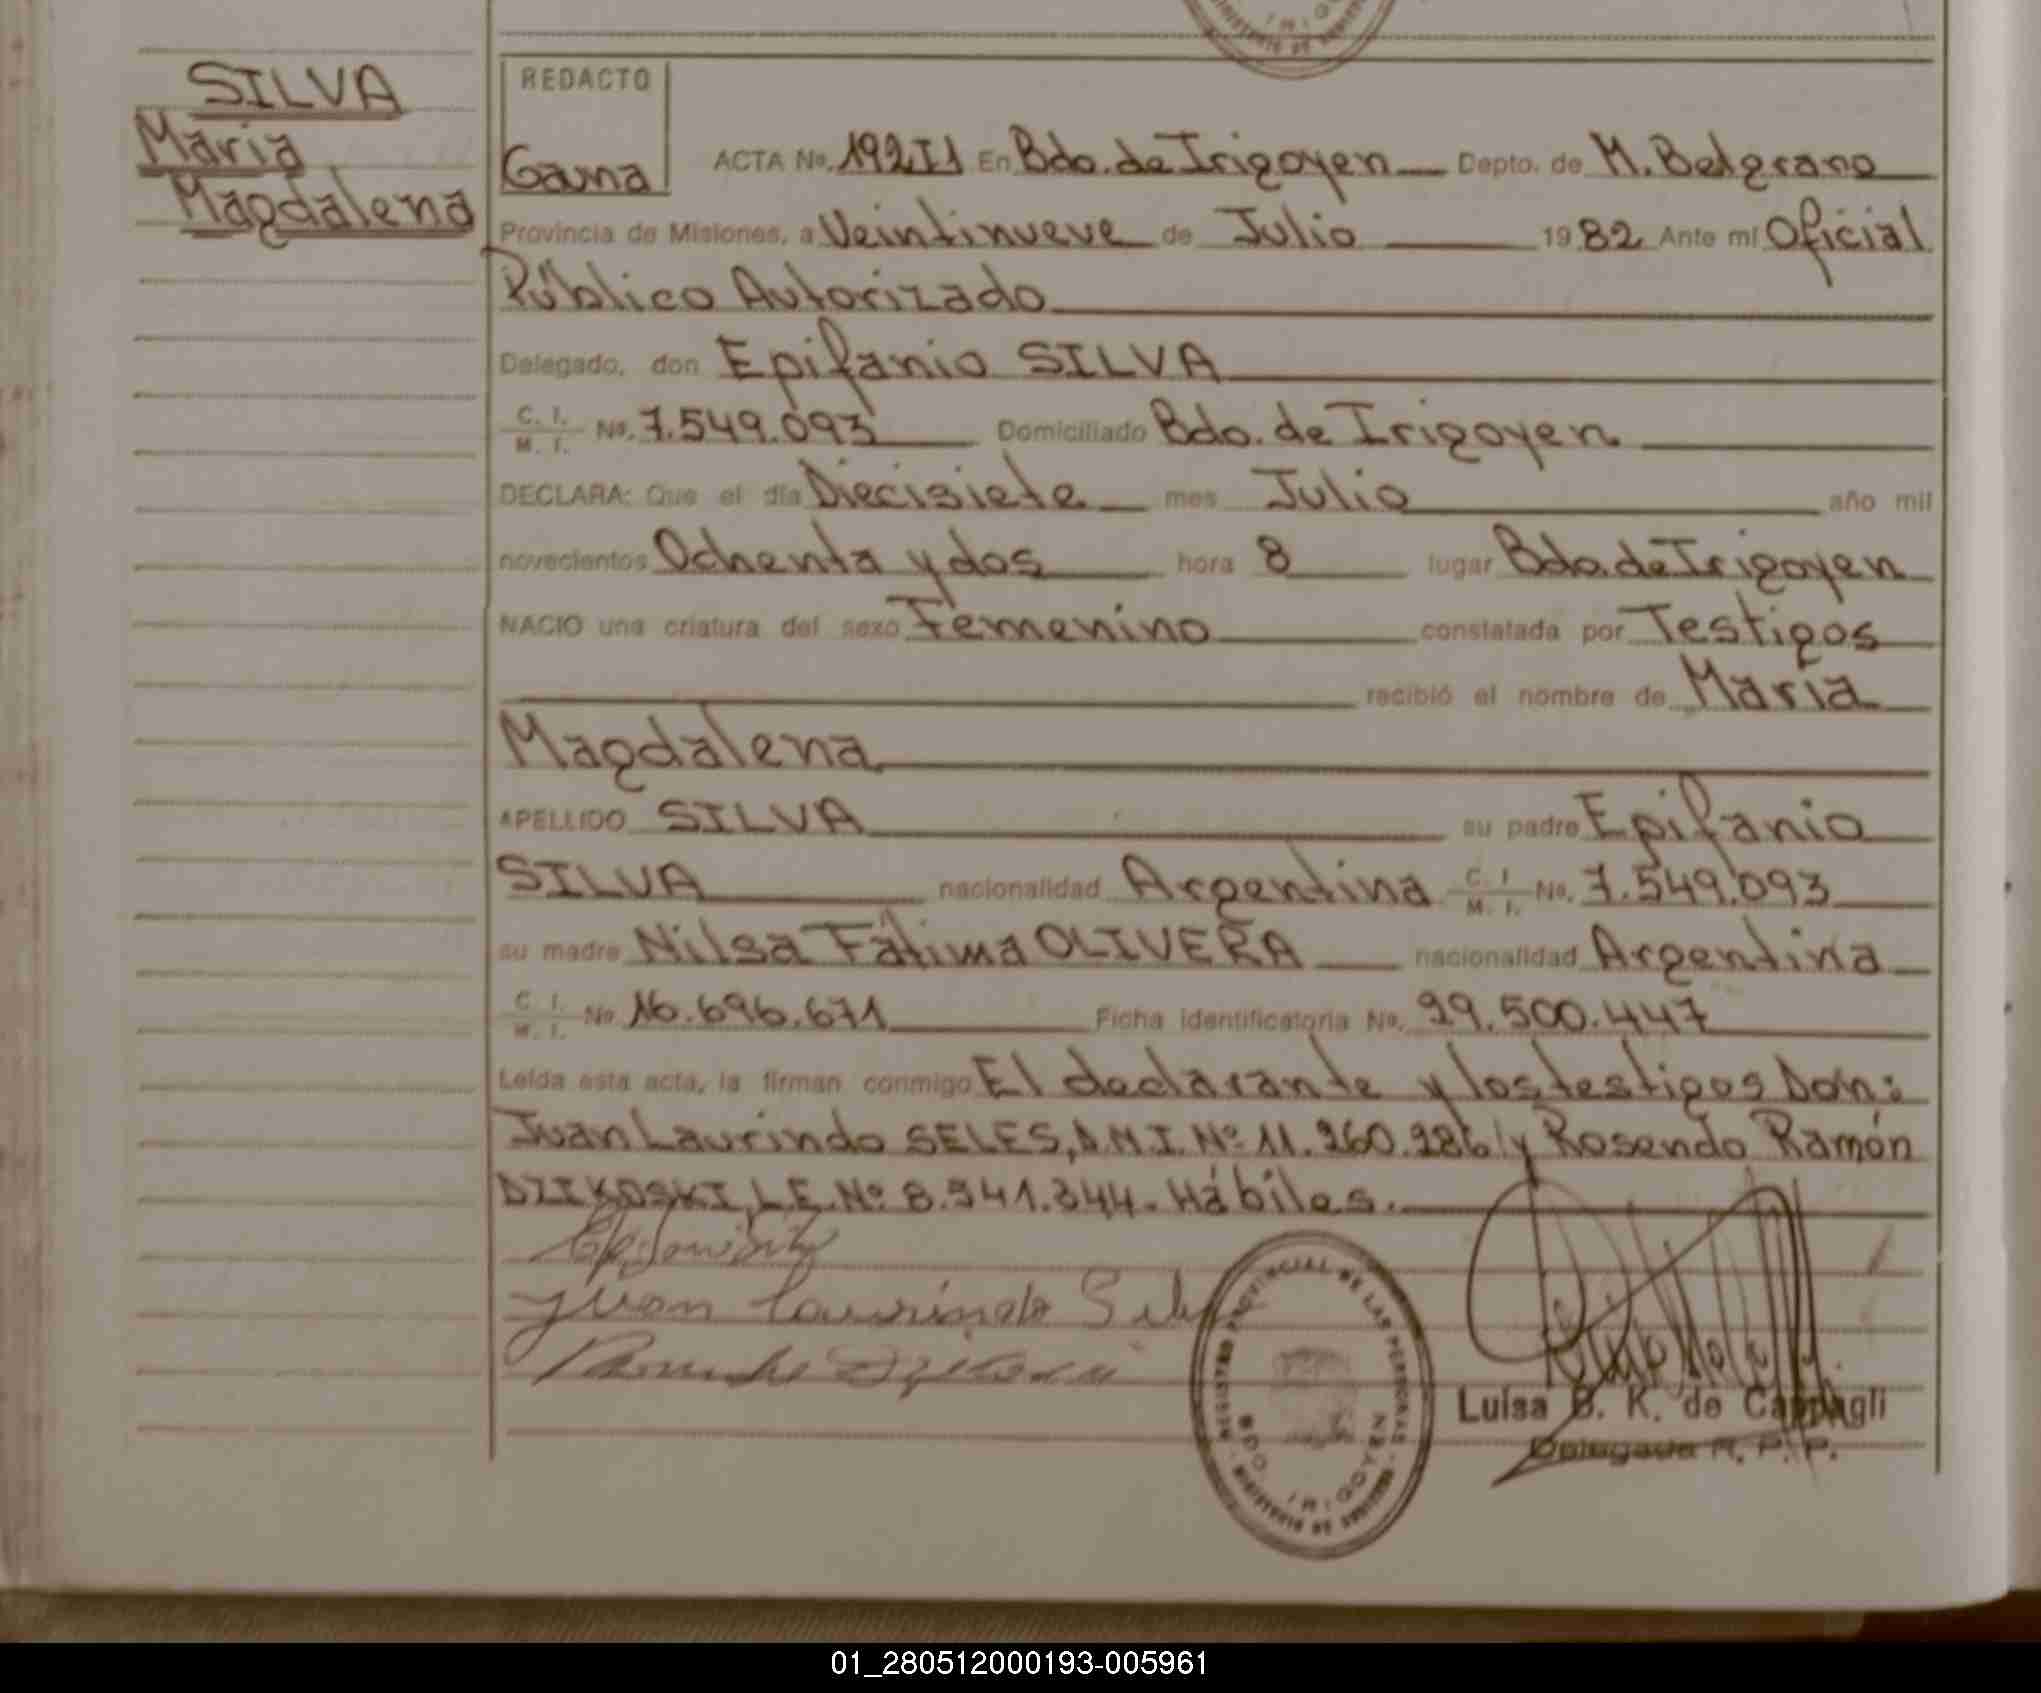 SILVA
Maria
Magdalena
REDACTO
Gama
ACTA No. 192 T1 En Bdo. de Irigoyen Depto. de M. Belgrano
Provincia de Misiones, a Veintinueve de Julio 1982 Ante mí Oficial
Público Autorizado
Delegado, don Epifanio SILVA
C. I. M. I. No. 7.549.093 Domiciliado Bdo. de Irigoyen
DECLARA: Que el día Diecisiete mes Julio año mil
novecientos Ochenta y dos hora 8 lugar Bdo. de Irigoyen
NACIO una criatura del sexo Femenino constatada por Testigos
recibió el nombre de María
Magdalena
APELLIDO SILVA su padre Epifanio
SILVA nacionalidad Argentina C. I. M. I. No. 7.549.093
su madre Nilsa Fátima OLIVERA nacionalidad Argentina
C. I. M. I. No 16.696.671 Ficha identificatoria No. 29.500.447
Leída esta acta, la firman conmigo El declarante y los testigos Don:
Juan Laurindo SELES, D.N.I. Nº 11.260.286 y Rosendo Ramón
DZIKOSKI, L.E. Nº 8.541.344. Hábiles.
Juan Laurindo
REGISTRO PROVINCIAL DE LAS PERSONAS
BDO. IRIGOYEN
Luisa B. K. de Cappagli
Delegada R. P. P.
01_280512000193-005961